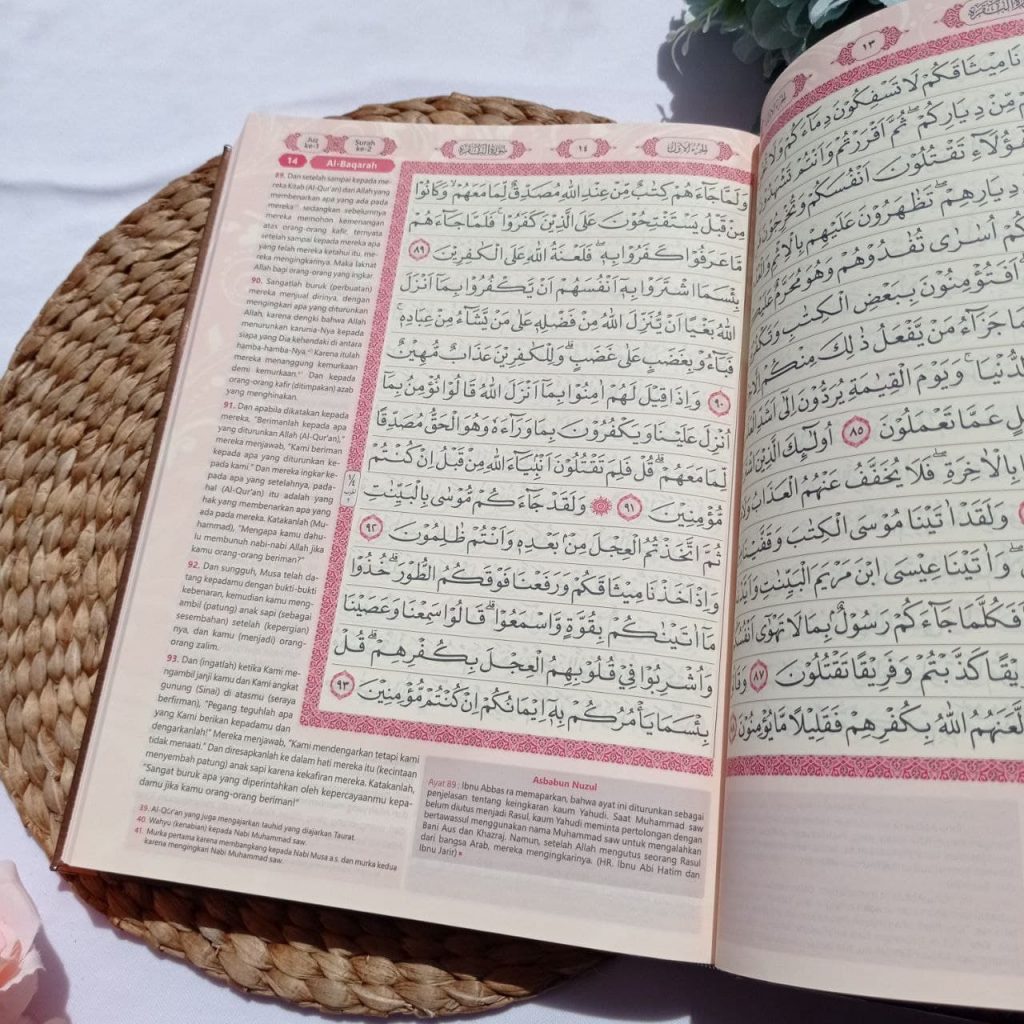 Juz ke-1
Surah ke-2
سورة البقرة
١٤
الجزء الأول
14
Al-Baqarah
89. Dan setelah sampai kepada me-
reka Kitab (Al-Qur'an) dari Allah yang
membenarkan apa yang ada pada
mereka³⁹ sedangkan sebelumnya
mereka memohon kemenangan
atas orang-orang kafir, ternyata
setelah sampai kepada mereka apa
yang telah mereka ketahui itu, me-
reka mengingkarinya. Maka laknat
Allah bagi orang-orang yang ingkar
90. Sangatlah buruk (perbuatan)
mereka menjual dirinya, dengan
mengingkari apa yang diturunkan
Allah, karena dengki bahwa Allah
menurunkan karunia-Nya kepada
siapa yang Dia kehendaki di antara
hamba-hamba-Nya.⁴⁰ Karena itulah
mereka menanggung kemurkaan
demi kemurkaan.⁴¹ Dan kepada
orang-orang kafir (ditimpakan) azab
yang menghinakan.
91. Dan apabila dikatakan kepada
mereka, "Berimanlah kepada apa
yang diturunkan Allah (Al-Qur'an),"
mereka menjawab, "Kami beriman
kepada apa yang diturunkan ke-
pada kami." Dan mereka ingkar ke-
pada apa yang setelahnya, pada-
hal (Al-Qur'an) itu adalah yang
hak yang membenarkan apa yang
ada pada mereka. Katakanlah (Mu-
hammad), "Mengapa kamu dahu-
lu membunuh nabi-nabi Allah jika
kamu orang-orang beriman?"
92. Dan sungguh, Musa telah da-
tang kepadamu dengan bukti-bukti
kebenaran, kemudian kamu meng-
ambil (patung) anak sapi (sebagai
sesembahan) setelah (kepergian)
nya, dan kamu (menjadi) orang-
orang zalim.
93. Dan (ingatlah) ketika Kami me-
ngambil janji kamu dan Kami angkat
gunung (Sinai) di atasmu (seraya
berfirman), "Pegang teguhlah apa
yang Kami berikan kepadamu dan
dengarkanlah!" Mereka menjawab, "Kami mendengarkan tetapi kami
tidak menaati." Dan diresapkanlah ke dalam hati mereka itu (kecintaan
menyembah patung) anak sapi karena kekafiran mereka. Katakanlah,
"Sangat buruk apa yang diperintahkan oleh kepercayaanmu kepa-
damu jika kamu orang-orang beriman!"
وَلَمَّا جَآءَهُمْ كِتٰبٌ مِّنْ عِنْدِ اللّٰهِ مُصَدِّقٌ لِّمَا مَعَهُمْۙ وَكَانُوْا
مِنْ قَبْلُ يَسْتَفْتِحُوْنَ عَلَى الَّذِيْنَ كَفَرُوْاۚ فَلَمَّا جَآءَهُمْ
مَّا عَرَفُوْا كَفَرُوْا بِهٖۖ فَلَعْنَةُ اللّٰهِ عَلَى الْكٰفِرِيْنَ ٨٩
بِئْسَمَا اشْتَرَوْا بِهٖٓ اَنْفُسَهُمْ اَنْ يَّكْفُرُوْا بِمَآ اَنْزَلَ
اللّٰهُ بَغْيًا اَنْ يُّنَزِّلَ اللّٰهُ مِنْ فَضْلِهٖ عَلٰى مَنْ يَّشَآءُ مِنْ عِبَادِهٖۚ
فَبَآءُوْ بِغَضَبٍ عَلٰى غَضَبٍۗ وَلِلْكٰفِرِيْنَ عَذَابٌ مُّهِيْنٌ
٩٠ وَاِذَا قِيْلَ لَهُمْ اٰمِنُوْا بِمَآ اَنْزَلَ اللّٰهُ قَالُوْا نُؤْمِنُ بِمَآ
اُنْزِلَ عَلَيْنَا وَيَكْفُرُوْنَ بِمَا وَرَآءَهٗ وَهُوَ الْحَقُّ مُصَدِّقًا
لِّمَا مَعَهُمْۗ قُلْ فَلِمَ تَقْتُلُوْنَ اَنْۢبِيَآءَ اللّٰهِ مِنْ قَبْلُ اِنْ كُنْتُمْ
مُّؤْمِنِيْنَ ٩١ ۞ وَلَقَدْ جَآءَكُمْ مُّوْسٰى بِالْبَيِّنٰتِ
ثُمَّ اتَّخَذْتُمُ الْعِجْلَ مِنْۢ بَعْدِهٖ وَاَنْتُمْ ظٰلِمُوْنَ ٩٢
وَاِذْ اَخَذْنَا مِيْثَاقَكُمْ وَرَفَعْنَا فَوْقَكُمُ الطُّوْرَۗ خُذُوْا
مَآ اٰتَيْنٰكُمْ بِقُوَّةٍ وَّاسْمَعُوْاۗ قَالُوْا سَمِعْنَا وَعَصَيْنَا
وَاُشْرِبُوْا فِيْ قُلُوْبِهِمُ الْعِجْلَ بِكُفْرِهِمْۗ قُلْ
بِئْسَمَا يَأْمُرُكُمْ بِهٖٓ اِيْمَانُكُمْ اِنْ كُنْتُمْ مُّؤْمِنِيْنَ ٩٣
39. Al-Qur'an yang juga mengajarkan tauhid yang diajarkan Taurat.
40. Wahyu (kenabian) kepada Nabi Muhammad saw.
41. Murka pertama karena membangkang kepada Nabi Musa a.s. dan murka kedua
karena mengingkari Nabi Muhammad saw.
Asbabun Nuzul
Ayat 89 : Ibnu Abbas ra memaparkan, bahwa ayat ini diturunkan sebagai
penjelasan tentang keingkaran kaum Yahudi. Saat Muhammad saw
belum diutus menjadi Rasul, kaum Yahudi meminta pertolongan dengan
bertawassul menggunakan nama Muhammad saw untuk mengalahkan
Bani Aus dan Khazraj. Namun, setelah Allah mengutus seorang Rasul
dari bangsa Arab, mereka mengingkarinya. (HR. Ibnu Abi Hatim dan
Ibnu Jarir)
١٣
نَا مِيْثَاقَكُمْ لَا تَسْفِكُوْنَ دِمَآءَكُمْ وَلَا
مِّنْ دِيَارِكُمْۖ ثُمَّ اَقْرَرْتُمْ وَاَنْتُمْ تَشْهَدُوْنَ
هٰٓؤُلَآءِ تَقْتُلُوْنَ اَنْفُسَكُمْ وَتُخْرِجُوْنَ
دِيَارِهِمْۖ تَظٰهَرُوْنَ عَلَيْهِمْ بِالْاِثْمِ
كُمْ اُسٰرٰى تُفٰدُوْهُمْ وَهُوَ مُحَرَّمٌ عَلَيْكُمْ
اَفَتُؤْمِنُوْنَ بِبَعْضِ الْكِتٰبِ وَتَكْ
مَا جَزَآءُ مَنْ يَّفْعَلُ ذٰلِكَ مِنْكُمْ اِلَّا
الدُّنْيَاۚ وَيَوْمَ الْقِيٰمَةِ يُرَدُّوْنَ اِلٰٓى اَشَدِّ
لٍ عَمَّا تَعْمَلُوْنَ ٨٥ اُولٰۤىِٕكَ الَّذِيْنَ
بِالْاٰخِرَةِۖ فَلَا يُخَفَّفُ عَنْهُمُ الْعَذَابُ وَلَا
وَلَقَدْ اٰتَيْنَا مُوْسَى الْكِتٰبَ وَقَفَّيْنَا
وَاٰتَيْنَا عِيْسَى ابْنَ مَرْيَمَ الْبَيِّنٰتِ وَاَيَّدْ
اَفَكُلَّمَا جَآءَكُمْ رَسُوْلٌۢ بِمَا لَا تَهْوٰىٓ اَنْفُ
يْقًا كَذَّبْتُمْ وَفَرِيْقًا تَقْتُلُوْنَ ٨٧ وَقَا
لَّعَنَهُمُ اللّٰهُ بِكُفْرِهِمْ فَقَلِيْلًا مَّا يُؤْمِنُوْنَ